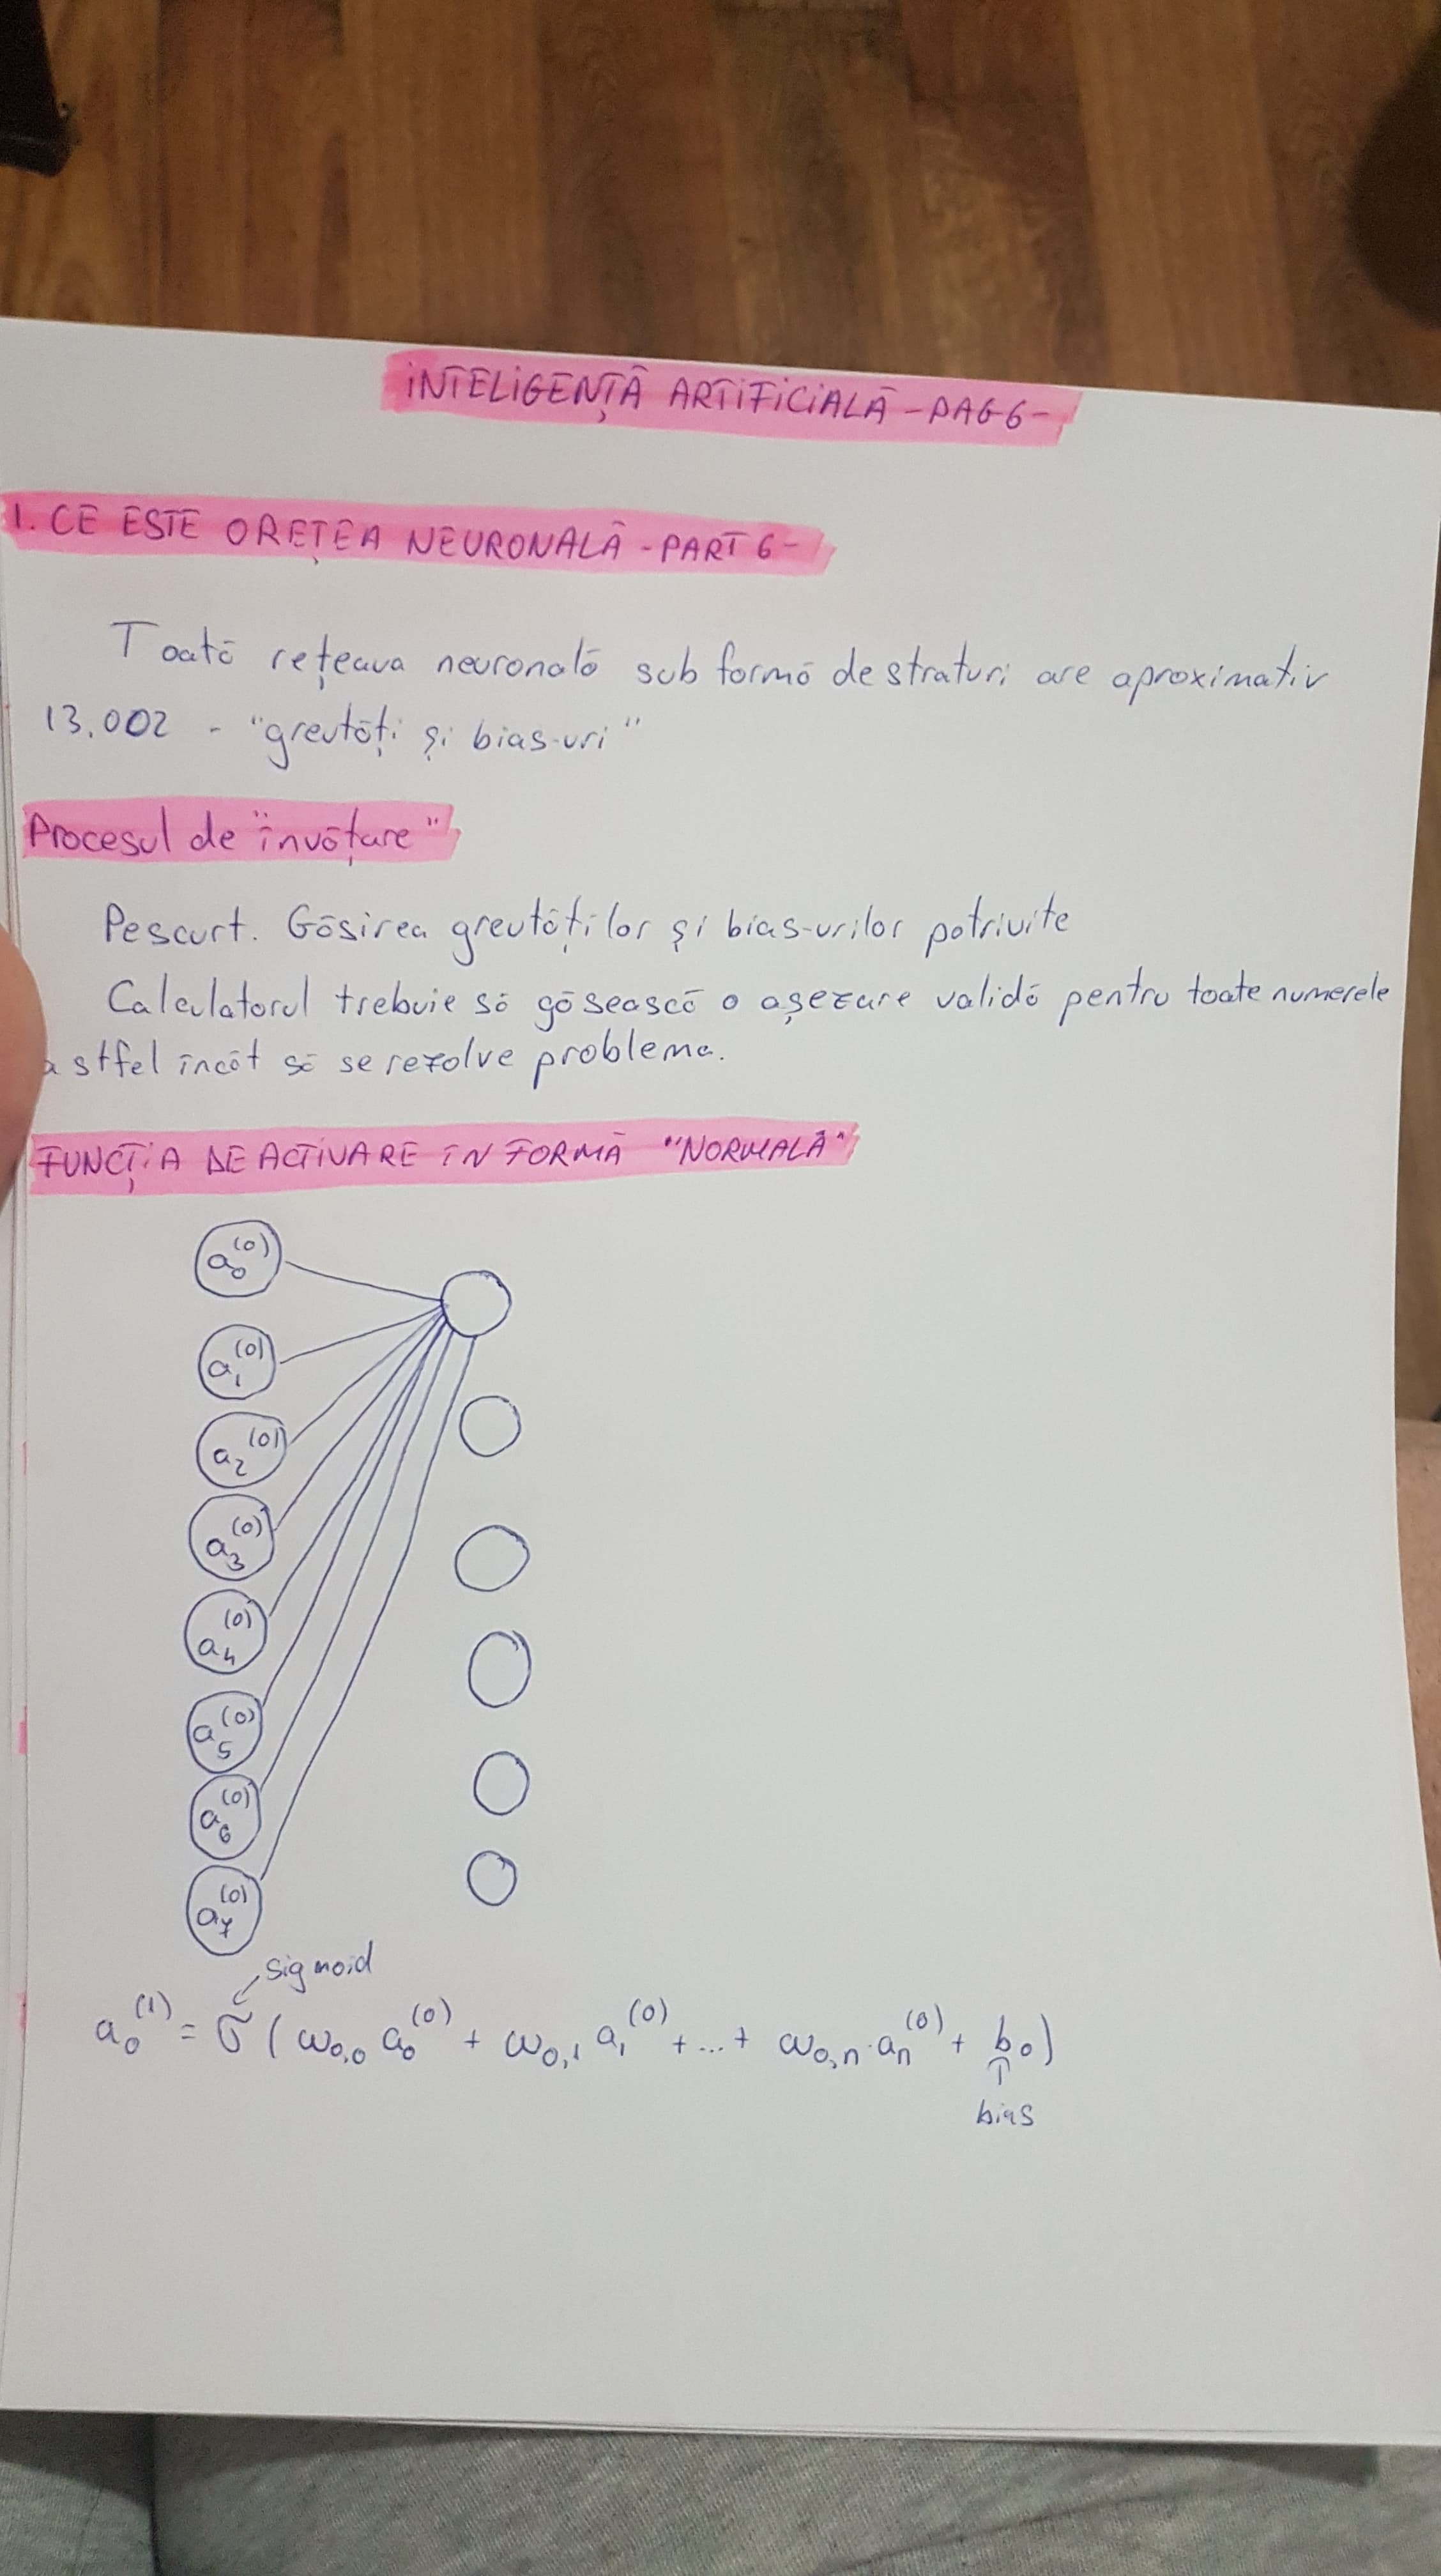 INTELIGENȚĂ ARTIFICIALĂ -PAG6-
1. CE ESTE O REȚEA NEURONALĂ -PART 6-
Toată rețeaua neuronală sub formă de straturi are aproximativ
13.002 - "greutăți și bias-uri"
Procesul de "învățare"
Pe scurt. Găsirea greutăților și bias-urilor potrivite
Calculatorul trebuie să găsească o așezare validă pentru toate numerele
astfel încât să se rezolve problema.
FUNCȚIA DE ACTIVARE ÎN FORMĂ "NORMALĂ"
a₀⁽⁰⁾
a₁⁽⁰⁾
a₂⁽⁰⁾
a₃⁽⁰⁾
a₄⁽⁰⁾
a₅⁽⁰⁾
a₆⁽⁰⁾
a₇⁽⁰⁾
sigmoid
a₀⁽¹⁾ = σ(ω₀,₀ a₀⁽⁰⁾ + ω₀,₁ a₁⁽⁰⁾ + ... + ω₀,ₙ · aₙ⁽⁰⁾ + b₀)
bias